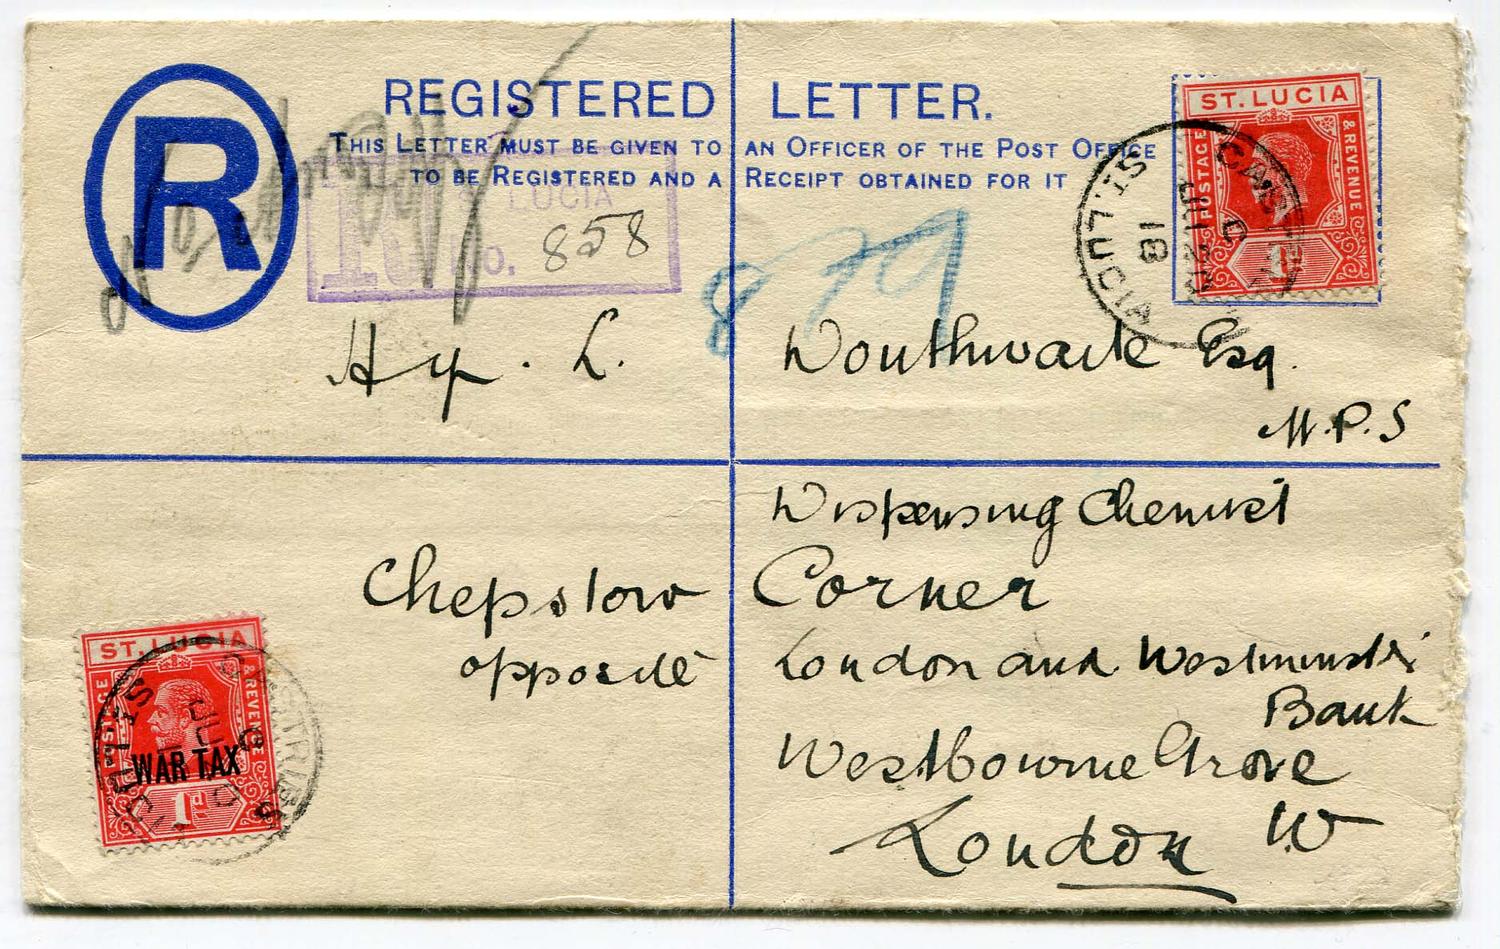 REGISTERED LETTER.
THIS LETTER MUST BE GIVEN TO AN OFFICER OF THE POST OFFICE
TO BE REGISTERED AND A RECEIPT OBTAINED FOR IT
R
R ST. LUCIA
No. 858
879
ST. LUCIA
POSTAGE & REVENUE
1d
CASTRIES
ST. LUCIA
18
Hy. L. Douthwaite Esq.
M.P.S
Dispensing Chemist
Chepstow Corner
opposite London and Westminster
Bank
Westbourne Grove
London W
ST. LUCIA
POSTAGE & REVENUE
WAR TAX
1d
CASTRIES
ST. LUCIA